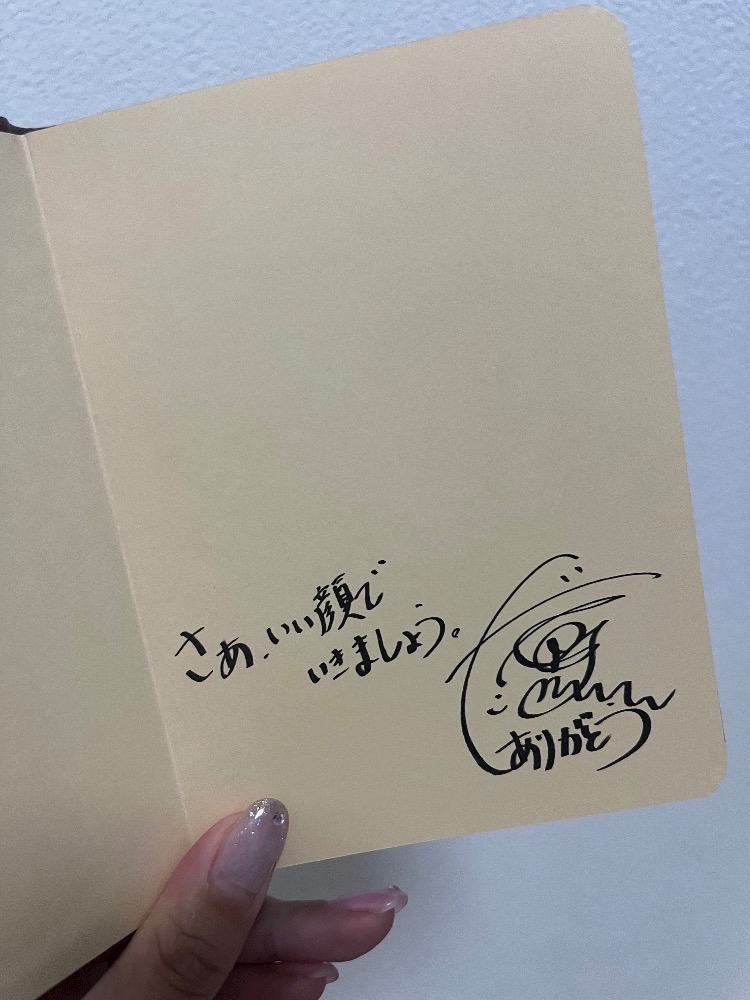 さあ、いい顔で
いきましょう。
ありがとう